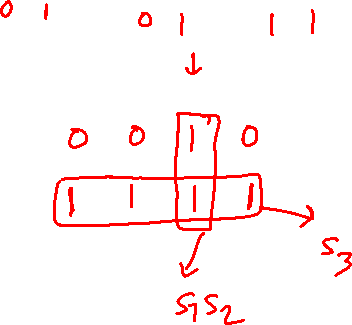 0 1 0 1 1 1
↓
0 0 1 0
1 1 1 1
S3
S1S2